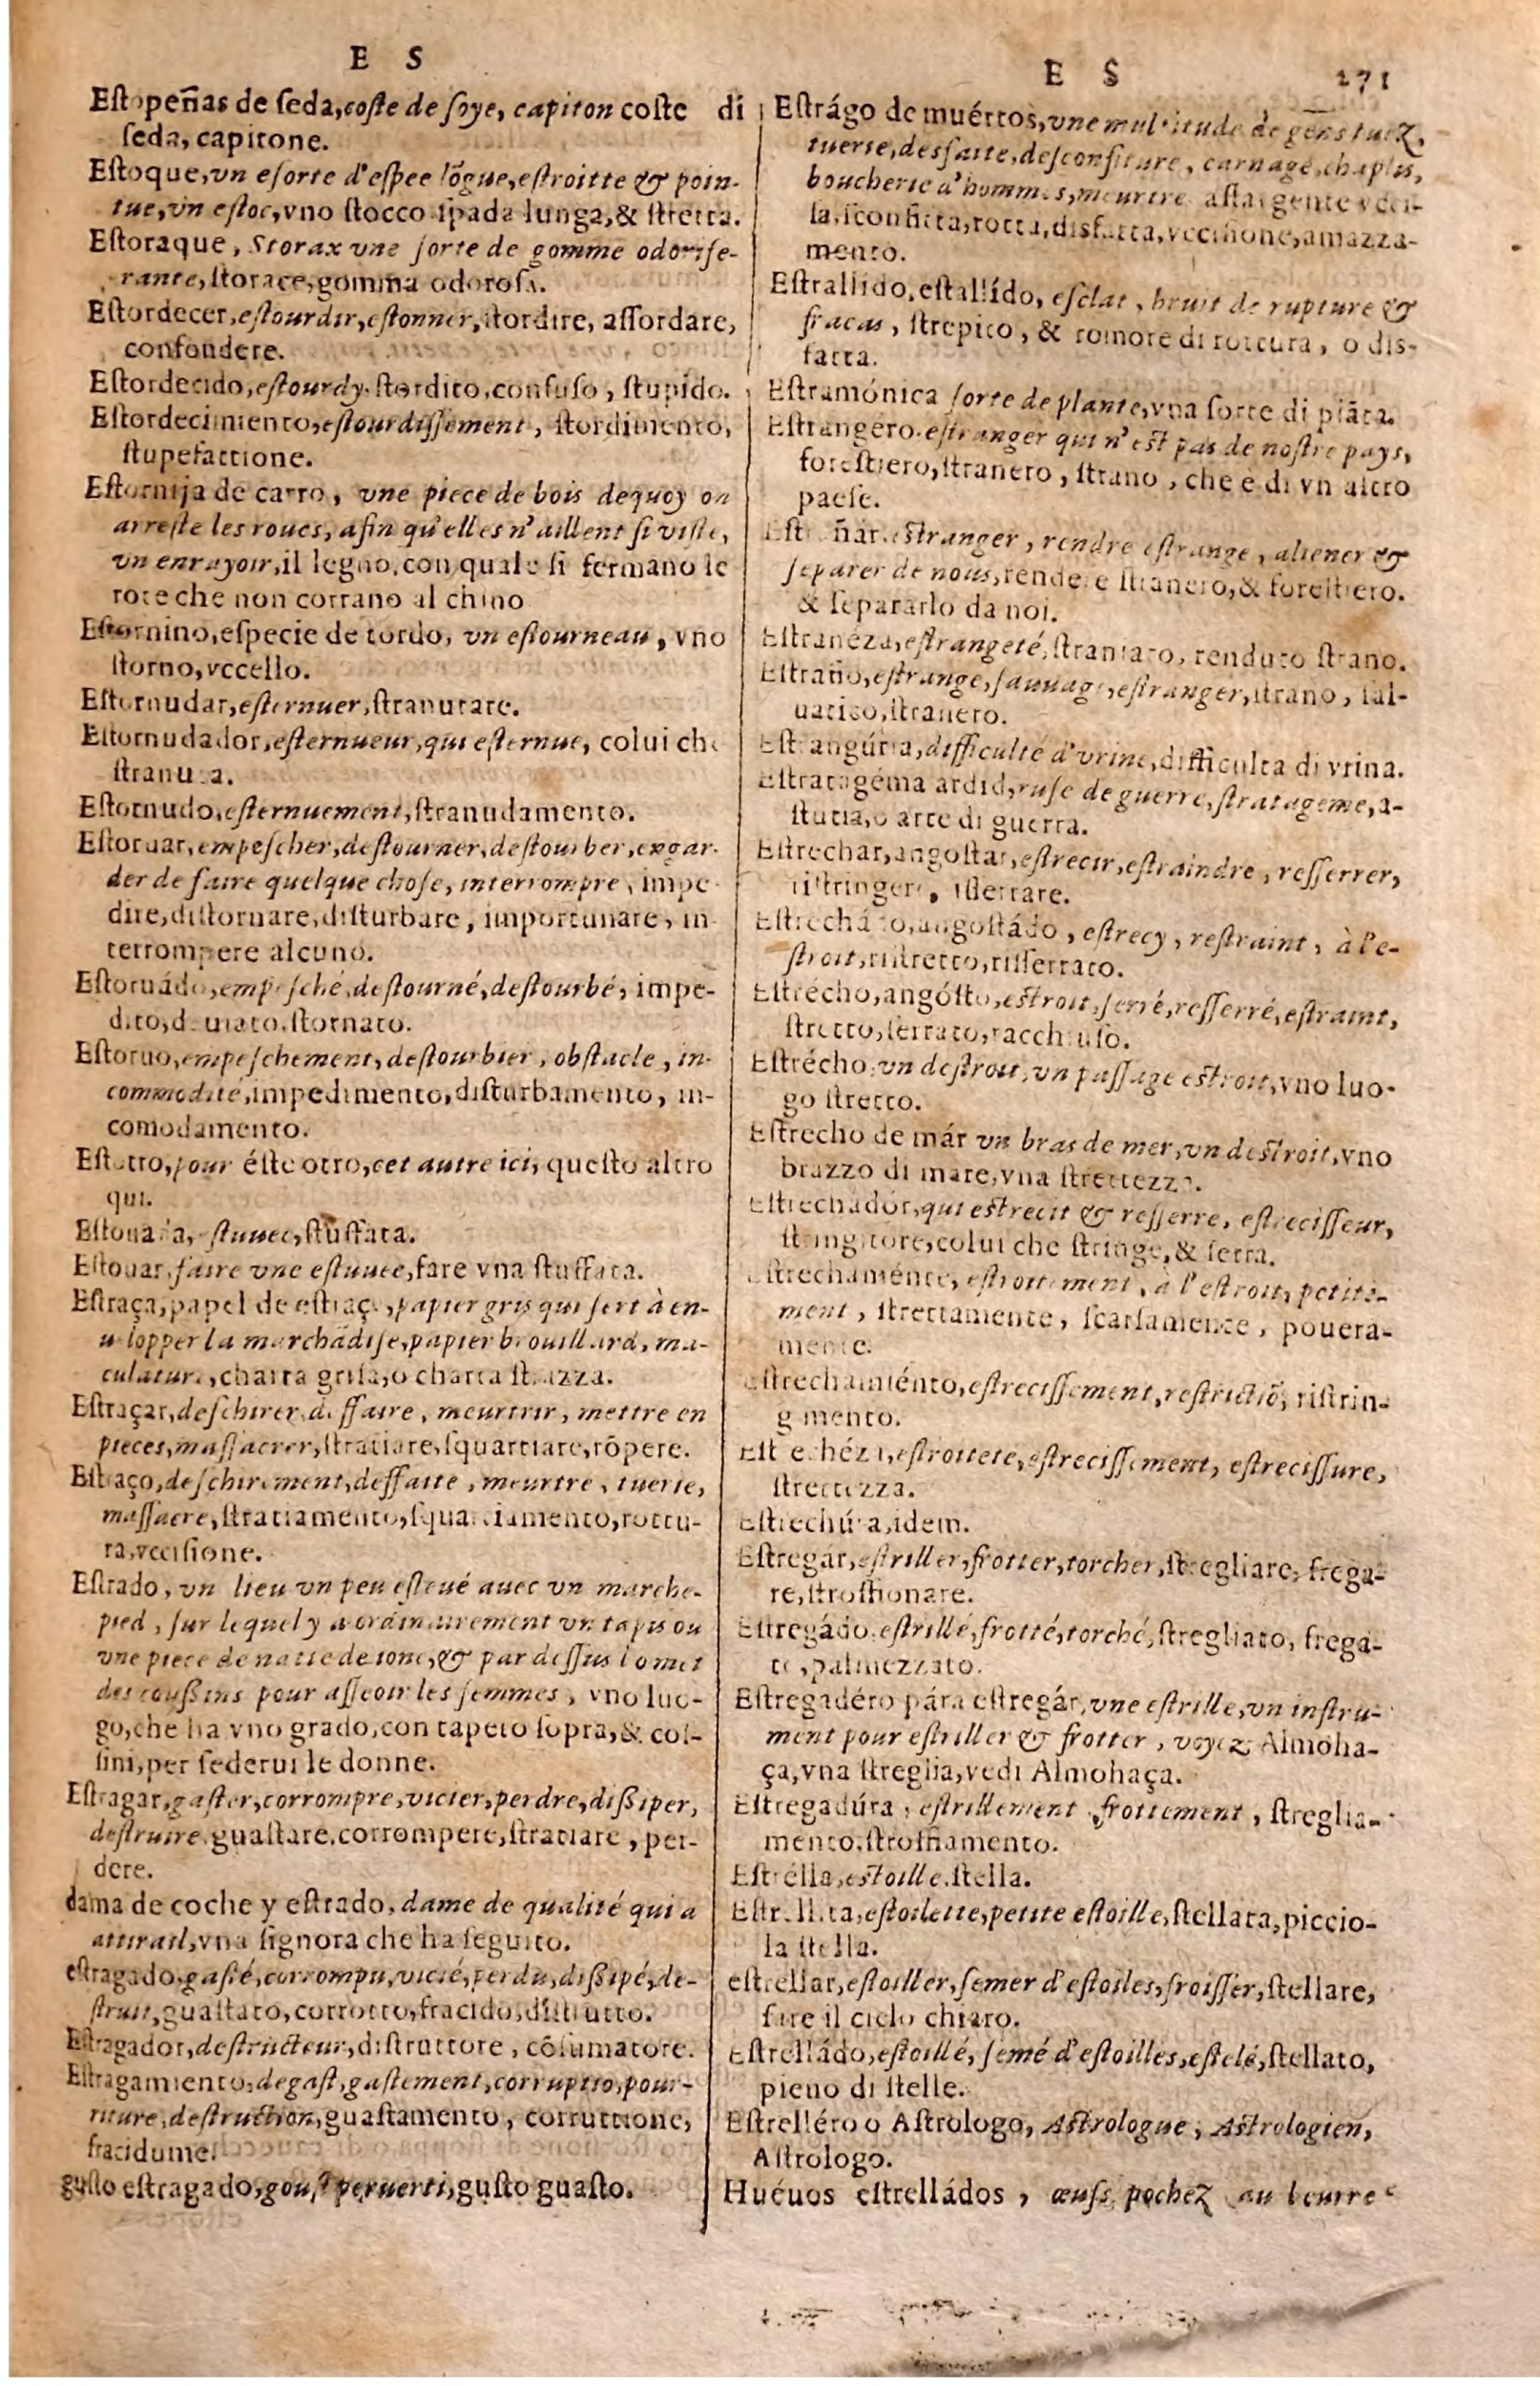 E S
Eſtopeñas de ſeda, coſte de ſoye, capiton coſte di
ſeda, capitone.
Eſtoque, vn eſorte d'eſpee lõgue, eſtroitte & poin-
tue, vn eſtoc, vno ſtocco ſpada lunga, & ſtretta.
Eſtoraque, Storax vne ſorte de gomme odorife-
rante, ſtorace, gomma odoroſa.
Eſtordecer, eſtourdir, eſtonner, ſtordire, aſſordare,
confondere.
Eſtordecido, eſtourdy. ſtordito, confuſo, ſtupido.
Eſtordecimiento, eſtourdiſſement, ſtordimento,
ſtupefattione.
Eſtornija de carro, vne piece de bois dequoy on
arreſte les roues, afin qu'elles n'aillent ſi viſte,
vn enrayoir, il legno, con quale ſi fermano le
rote che non corrano al chino
Eſtornino, eſpecie de tordo, vn eſtourneau, vno
ſtorno, vccello.
Eſtornudar, eſternuer, ſtranutare.
Eſtornudador, eſternueur, qui eſternue, colui che
ſtranuta.
Eſtornudo, eſternuement, ſtranudamento.
Eſtoruar, empeſcher, deſtourner, deſtourber, engar-
der de faire quelque choſe, interrompre, impe-
dire, diſtornare, diſturbare, importunare, in-
terrompere alcuno.
Eſtoruádo, empeſché, deſtourné, deſtourbé, impe-
dito, deuiato, ſtornato.
Eſtoruo, empeſchement, deſtourbier, obſtacle, in-
commodité, impedimento, diſturbamento, in-
comodamento.
Eſtotro, pour éſte otro, cet autre ici, queſto altro
qui.
Eſtouada, eſtuuee, ſtuffata.
Eſtouar, faire vne eſtuuee, fare vna ſtuffata.
Eſtraça, papel de eſtraça, papier gris qui ſert à en-
uelopper la marchãdiſe, papier brouillard, ma-
culature, charta griſa, o charta ſtrazza.
Eſtraçar, deſchirer, deffaire, meurtrir, mettre en
pieces, maſſacrer, ſtratiare, ſquartiare, rõpere.
Eſtraço, deſchirement, deffaite, meurtre, tuerie,
maſſacre, ſtratiamento, ſquartiamento, rottu-
ra, vcciſione.
Eſtrado, vn lieu vn peu esleué auec vn marche-
pied, ſur lequel y a ordinairement vn tapis ou
vne piece de natte de ionc, & par deſſus l'o met
des couſſins pour aſſeoir les femmes, vno luo-
go, che ha vno grado, con tapeto ſopra, & coſ-
ſini, per ſederui le donne.
Eſtragar, gaſter, corrompre, vicier, perdre, diſſiper,
deſtruire. guaſtare, corrompere, ſtratiare, per-
dere.
dama de coche y eſtrado, dame de qualité qui a
attirail, vna ſignora che ha ſeguito.
eſtragado, gaſté, corrompu, vicié, perdu, diſſipé, de-
ſtruit, guaſtato, corrotto, fracido, diſtrutto.
Eſtragador, deſtructeur, diſtruttore, cõſumatore.
Eſtragamiento, degaſt, gaſtement, corruptio, pour-
riture, deſtruction, guaſtamento, corruttione,
fracidume.
guſto eſtragado, gouſt peruerti, guſto guaſto.
E S 271
Eſtrágo de muértos, vne multitude de gẽns tuez,
tuerie, desfaite, deſconfiture, carnage, chaplis,
boucherie d'hommes, meurtre aſſai gente vcci-
ſa, ſconfitta, rotta, disfatta, vcciſione, amazza-
mento.
Eſtrallido, eſtallído, eſclat, bruit de rupture &
fracas, ſtrepito, & romore di rottura, o dis-
fatta.
Eſtramónica ſorte de plante, vna ſorte di piãta.
Eſtrangero. eſtranger qui n'eſt pas de noſtre pays,
foreſtiero, ſtranero, ſtrano, che è di vn altro
paeſe.
Eſtrañár, eſtranger, rendre eſtrange, aliener &
ſeparer de nous, rendere ſtranero, & foreſtiero.
& ſepararlo da noi.
Eſtrañéza, eſtrangeté, ſtraniato, renduto ſtrano.
Eſtraño, eſtrange, ſauuage, eſtranger, ſtrano, ſal-
uatico, ſtranero.
Eſtrangúria, difficulté d'vrine, difficulta di vrina.
Eſtratagéma ardid, ruſe de guerre, ſtratageme, a-
ſtutia, o arte di guerra.
Eſtrechar, angoſtar, eſtrecir, eſtraindre, reſſerrer,
riſtringere, riſſerrare.
Eſtrecháto, angoſtádo, eſtrecy, reſtraint, à l'e-
ſtroit, riſtretto, riſſerrato.
Eſtrécho, angóſto, eſtroit, ſerré, reſſerré, eſtraint,
ſtretto, ſerrato, racchiuſo.
Eſtrécho, vn deſtroit, vn paſſage eſtroit, vno luo-
go ſtretto.
Eſtrecho de már vn bras de mer, vn deſtroit, vno
brazzo di mare, vna ſtrettezza.
Eſtrechadór, qui eſtrecit & reſſerre, eſtreciſſeur,
ſtringitore, colui che ſtringe, & ſerra.
Eſtrechaménte, eſtroittement, à l'eſtroit, petite-
ment, ſtrettamente, ſcarſamente, pouera-
mente.
Eſtrechamiénto, eſtreciſſement, reſtrictiõ, riſtrin-
gimento.
Eſtrechéza, eſtroitteté, eſtreciſſement, eſtreciſſure,
ſtrettezza.
Eſtrechúra, idem.
Eſtregár, eſtriller, frotter, torcher, ſtregliare, frega-
re, ſtroffionare.
Eſtregádo, eſtrillé, frotté, torché, ſtregliato, frega-
to, palmezzato.
Eſtregadéro pára eſtregár, vne eſtrille, vn inſtru-
ment pour eſtriller & frotter, voyez Almoha-
ça, vna ſtreglia, vedi Almohaça.
Eſtregadúra, eſtrillement, frottement, ſtreglia-
mento, ſtroffiamento.
Eſtrélla, eſtoille, ſtella.
Eſtrellita, eſtoilette, petite eſtoille, ſtellata, piccio-
la ſtella.
eſtrellar, eſtoiller, ſemer d'eſtoiles, froiſſer, ſtellare,
fare il cielo chiaro.
Eſtrelládo, eſtoillé, ſemé d'eſtoilles, eſtelé, ſtellato,
pieno di ſtelle.
Eſtrelléro o Aſtrologo, Aſtrologue, Aſtrologien,
Aſtrologo.
Huéuos eſtrelládos, œufs pochez au beurre